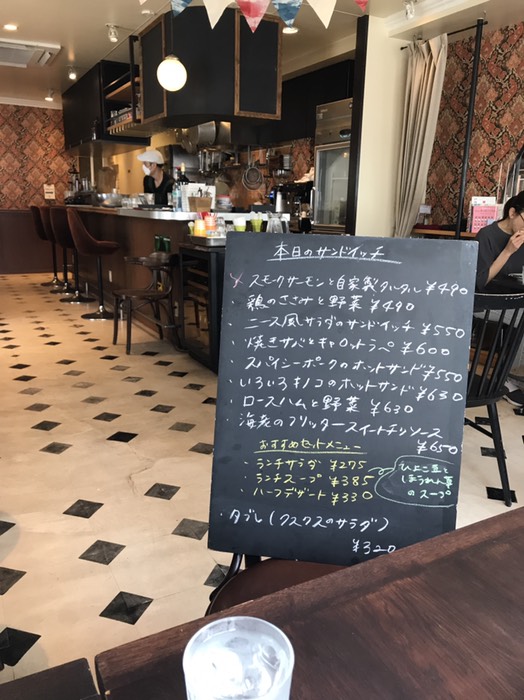 本日のサンドイッチ
× スモークサーモンと自家製タルタル ¥490
・鶏のささみと野菜 ¥490
・ニース風サラダのサンドイッチ ¥550
・焼きサバとキャロットラペ ¥600
・スパイシーポークのホットサンド ¥550
・いろいろキノコのホットサンド ¥630
・ロースハムと野菜 ¥630
海老のフリッタースイートチリソース
¥650
おすすめセットメニュー
・ランチサラダ ¥275
・ランチスープ ¥385
・ハーフデザート ¥330
ひよこ豆と
ほうれん草
のスープ
・タブレ(クスクスのサラダ)
¥320